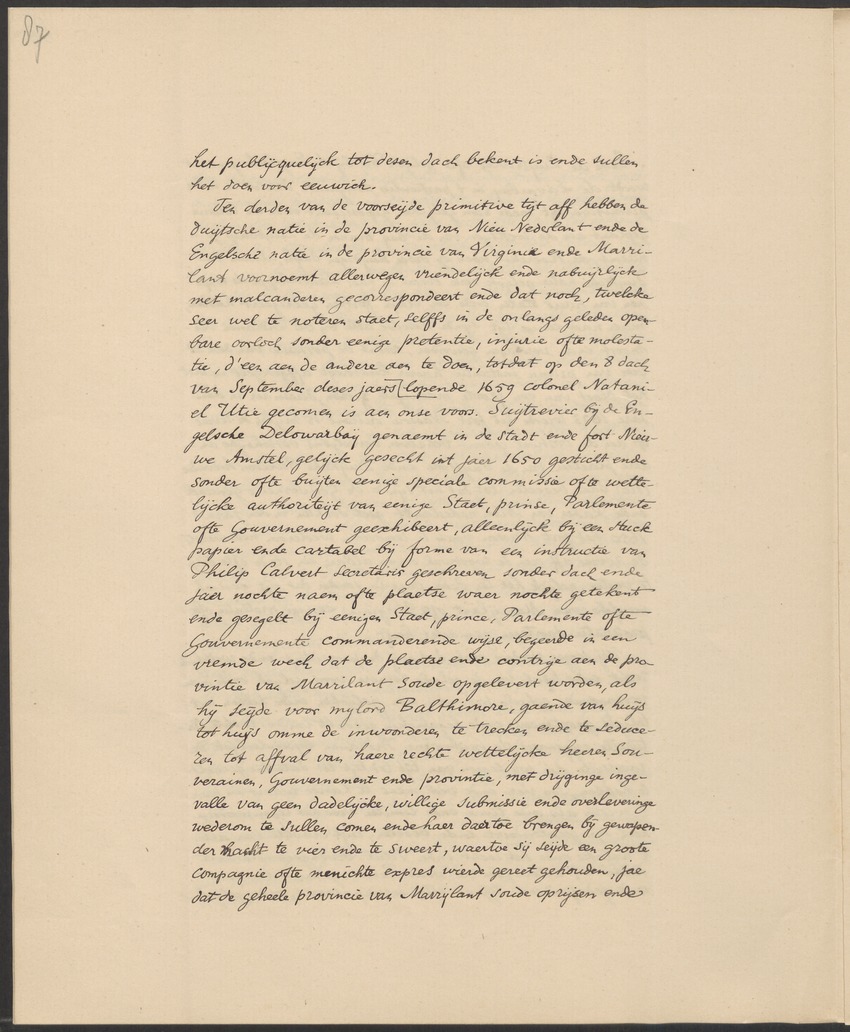 87
het publijcquelijck tot desen dach bekent is ende sullen
het doen voor eeuwich.
Ten derden van de voorseijde primitive tijt aff hebben de
duijtsche natie in de provincie van Nieu Nederlant ende de
Engelsche natie in de provincie van Virginia ende Marri-
lant voornoemt allerwegen vriendelijck ende nabuijrlijck
met malcanderen gecorrespondeert ende dat noch, twelcke
seer wel te noteren staet, selffs in de onlangs geleden open-
bare oorloch sonder eenige pretentie, injurie ofte molesta-
tie, d'een aen de andere aen te doen, totdat op den 8 dach
van September deses jaers lopende 1659 colonel Natani-
el Utie gecomen is aen onse voors. Suijtrevier bij de En-
gelsche Delowarbaij genaemt in de stadt ende fort Nieu-
we Amstel, gelijck gesecht int jaer 1650 gesticht ende
sonder ofte buijten eenige speciale commissie ofte wette-
lijcke authoriteijt van eenige Staet, prinse, Parlemente
ofte Gouvernement geexhibeert, alleenlijck bij een stuck
papier ende cartabel bij forme van een instructie van
Philip Calvert secretaris geschreven sonder dach ende
jaer nochte naem ofte plaetse waer nochte getekent
ende gesegelt bij eenigen Staet, prince, Parlemente ofte
Gouvernemente commanderende wijse, begeerde in een
vremde wech dat de plaetse ende contrije aen de pro-
vintie van Marrilant soude opgelevert worden, als
hij seijde voor mylord Balthimore, gaende van huijs
tot huijs omme de inwoonderen te trecken ende te seduce-
ren tot affval van haere rechte wettelijcke heeren Sou-
verainen, Gouvernement ende provintie, met drijginge inge-
valle van geen dadelijcke, willige submissie ende overleveringe
wederom te sullen comen ende haer daertoe brengen bij gewapen-
der hacht te vier ende te sweert, waertoe sij seijde een groote
compagnie ofte menichte expres wierde gereet gehouden, jae
dat de geheele provincie van Marrijlant soude oprijsen ende